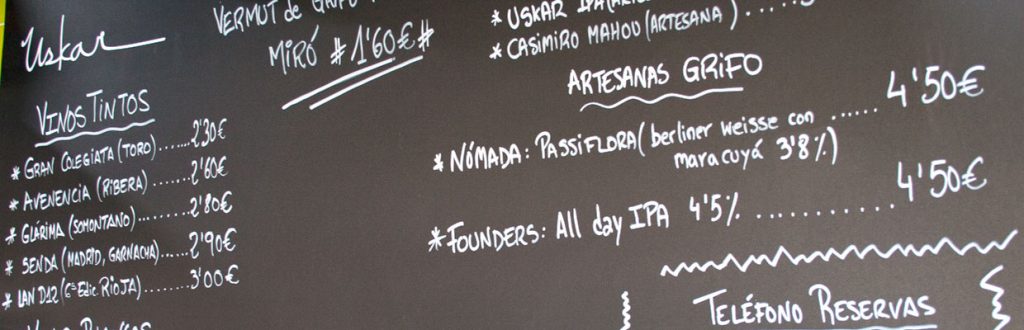 Uskar
VERMUT de GRIFO
MIRÓ #1'60€#
VINOS TINTOS
* GRAN COLEGIATA (TORO).......2'30€
* AVENENCIA (RIBERA).......2'60€
* GLÁRIMA (SOMONTANO)........2'80€
* SENDA (MADRID, GARNACHA)......2'90€
* LAN D12 (6ª Edic. RIOJA).......3'00€
* USKAR IPA
* CASIMIRO MAHOU (ARTESANA)
ARTESANAS GRIFO
* NÓMADA: PASSIFLORA (berliner weisse con ...... 4'50€
maracuyá 3'8%)
* FOUNDERS: All day IPA 4'5% ........... 4'50€
TELÉFONO RESERVAS